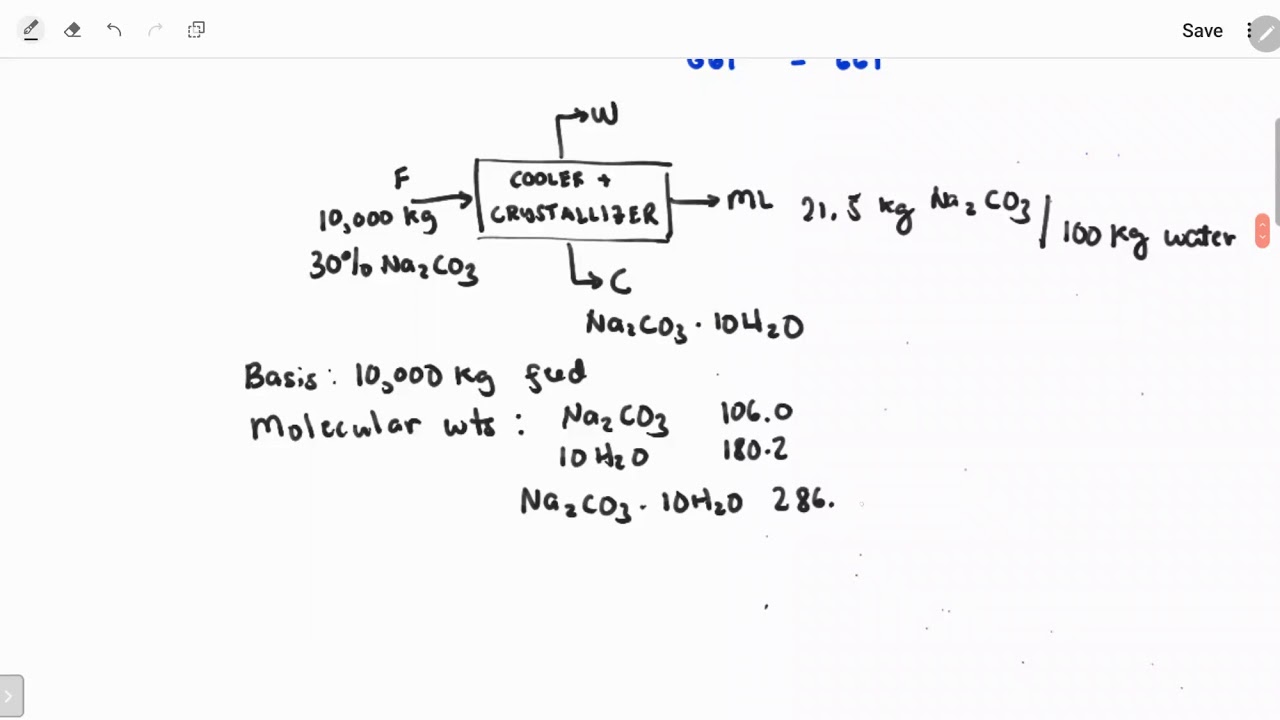 Save
F
10,000 kg
30% Na₂CO₃
W
COOLER +
CRYSTALLIZER
ML
21.5 kg Na₂CO₃ / 100 kg water
C
Na₂CO₃ · 10H₂O
Basis: 10,000 kg feed
Molecular wts : Na₂CO₃ 106.0
10 H₂O 180.2
Na₂CO₃ · 10H₂O 286.